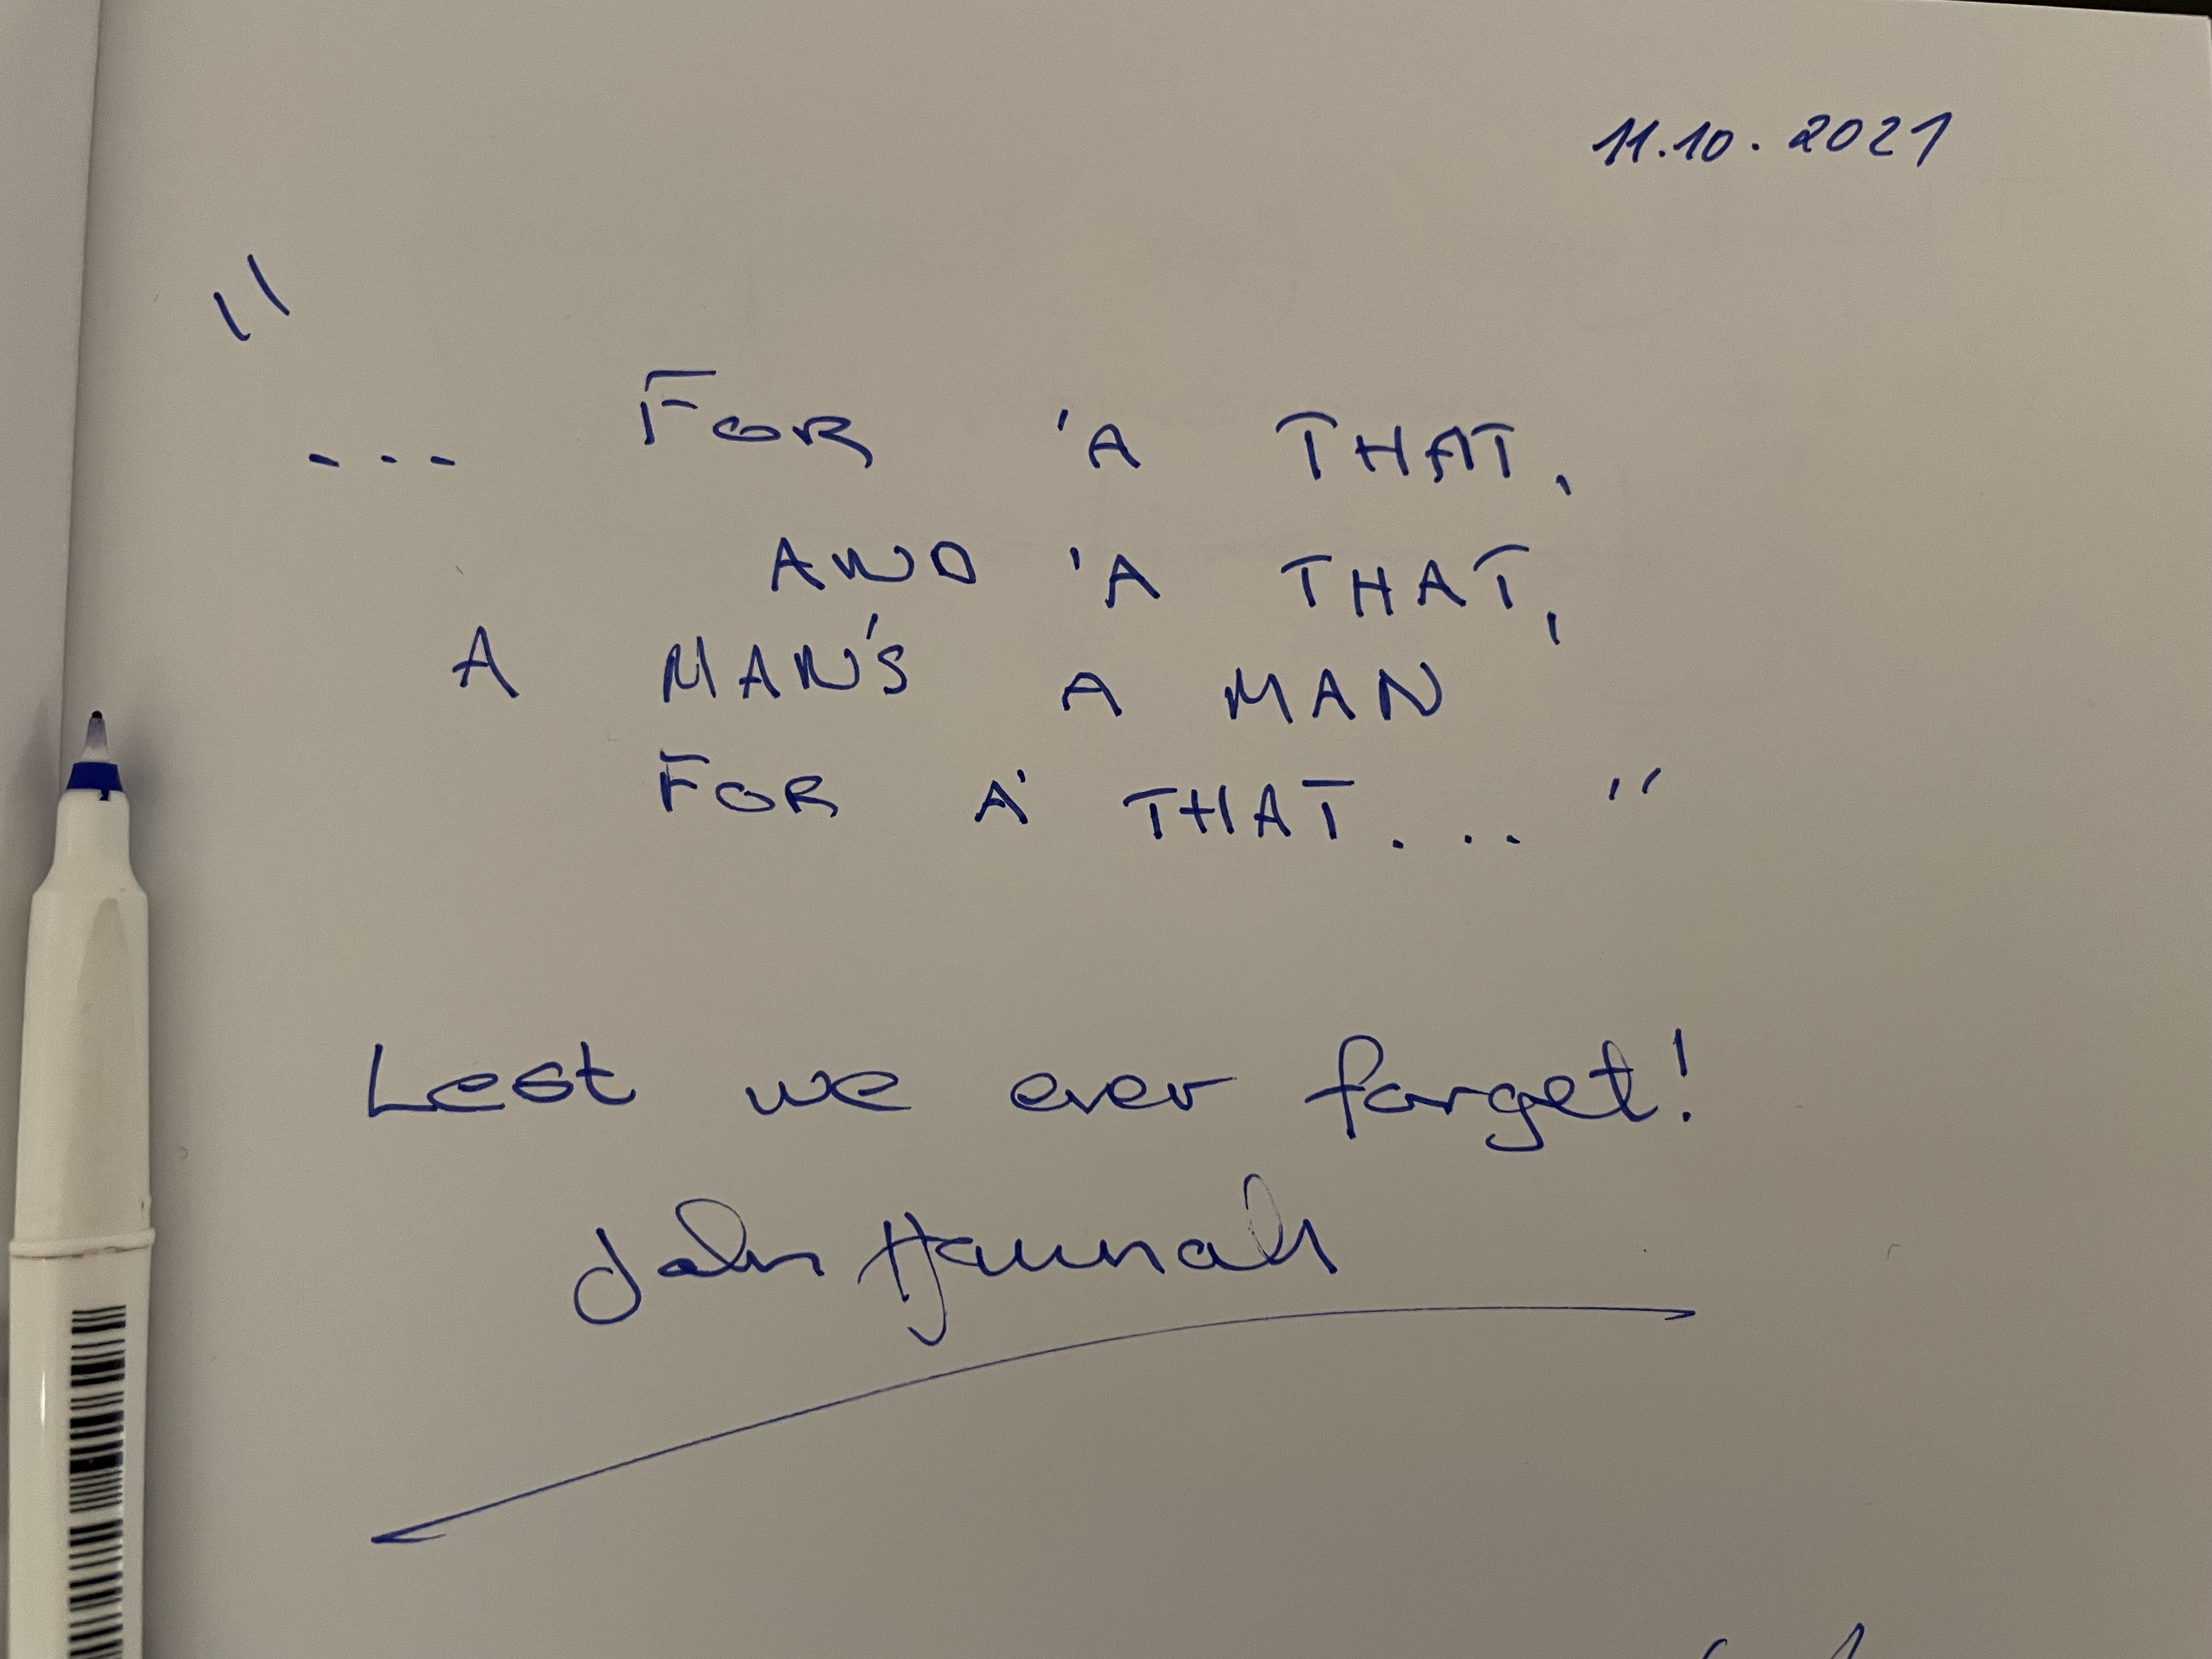 11.10.2021
"
... FOR 'A THAT,
AND 'A THAT,
A MAN'S A MAN
FOR A' THAT... "
Lest we ever forget!
John Hannah